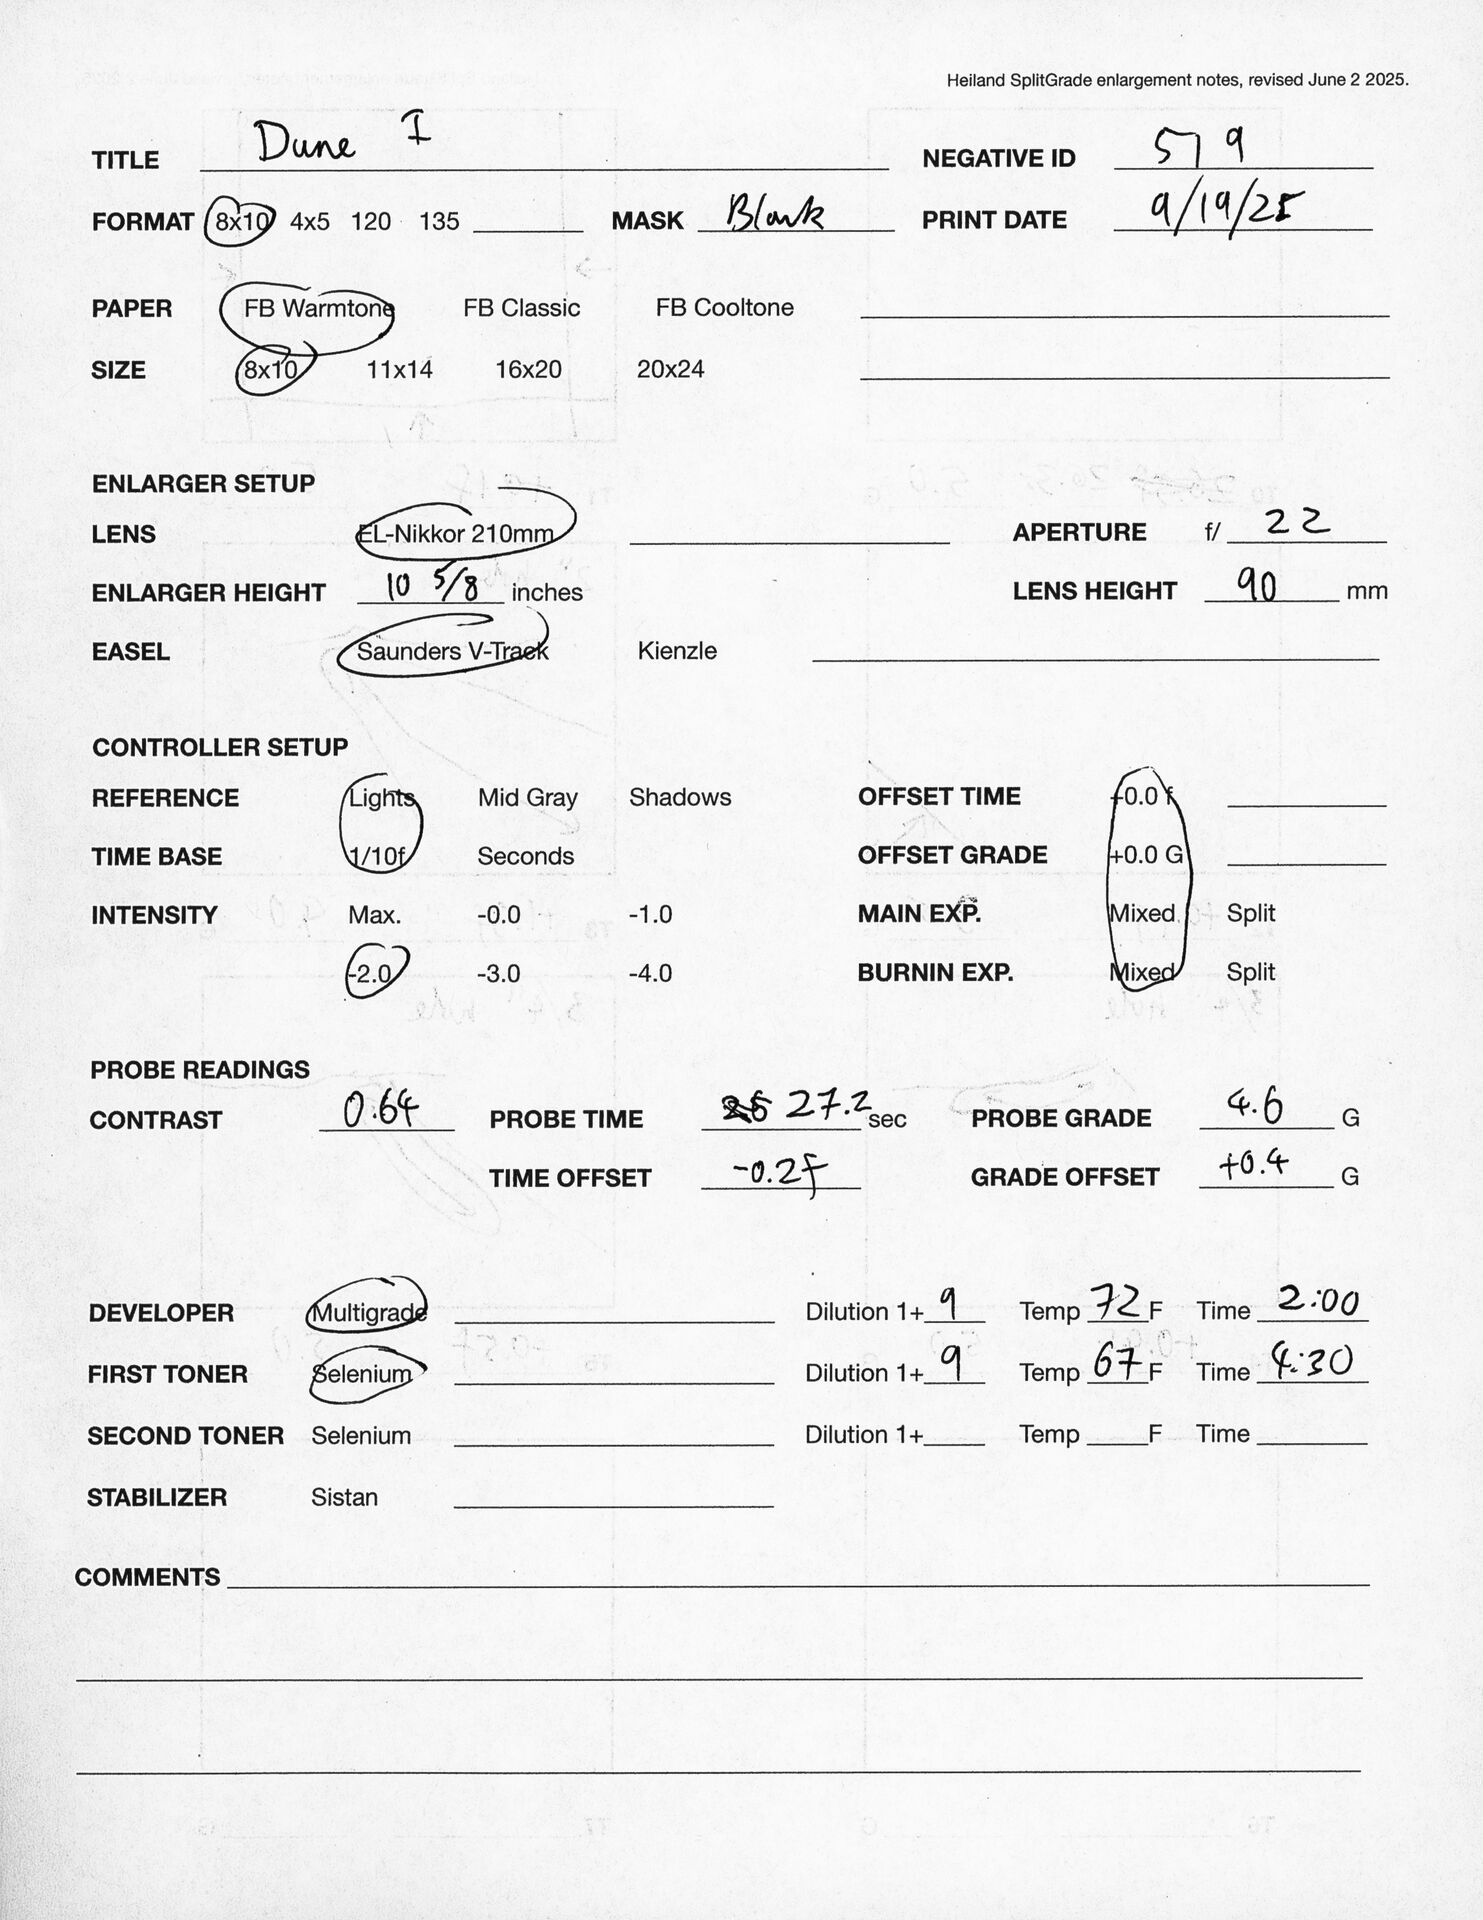 Heiland SplitGrade enlargement notes, revised June 2 2025.
TITLE Dune I NEGATIVE ID 579
FORMAT 8x10 4x5 120 135 MASK Blank PRINT DATE 9/19/25
PAPER FB Warmtone FB Classic FB Cooltone
SIZE 8x10 11x14 16x20 20x24
ENLARGER SETUP
LENS EL-Nikkor 210mm APERTURE f/ 22
ENLARGER HEIGHT 10 5/8 inches LENS HEIGHT 90 mm
EASEL Saunders V-Track Kienzle
CONTROLLER SETUP
REFERENCE Lights Mid Gray Shadows OFFSET TIME +0.0 f
TIME BASE 1/10f Seconds OFFSET GRADE +0.0 G
INTENSITY Max. -0.0 -1.0 MAIN EXP. Mixed Split
-2.0 -3.0 -4.0 BURNIN EXP. Mixed Split
PROBE READINGS
CONTRAST 0.64 PROBE TIME 27.2 sec PROBE GRADE 4.6 G
TIME OFFSET -0.2f GRADE OFFSET +0.4 G
DEVELOPER Multigrade Dilution 1+ 9 Temp 72 F Time 2:00
FIRST TONER Selenium Dilution 1+ 9 Temp 67 F Time 4:30
SECOND TONER Selenium Dilution 1+ Temp F Time
STABILIZER Sistan
COMMENTS